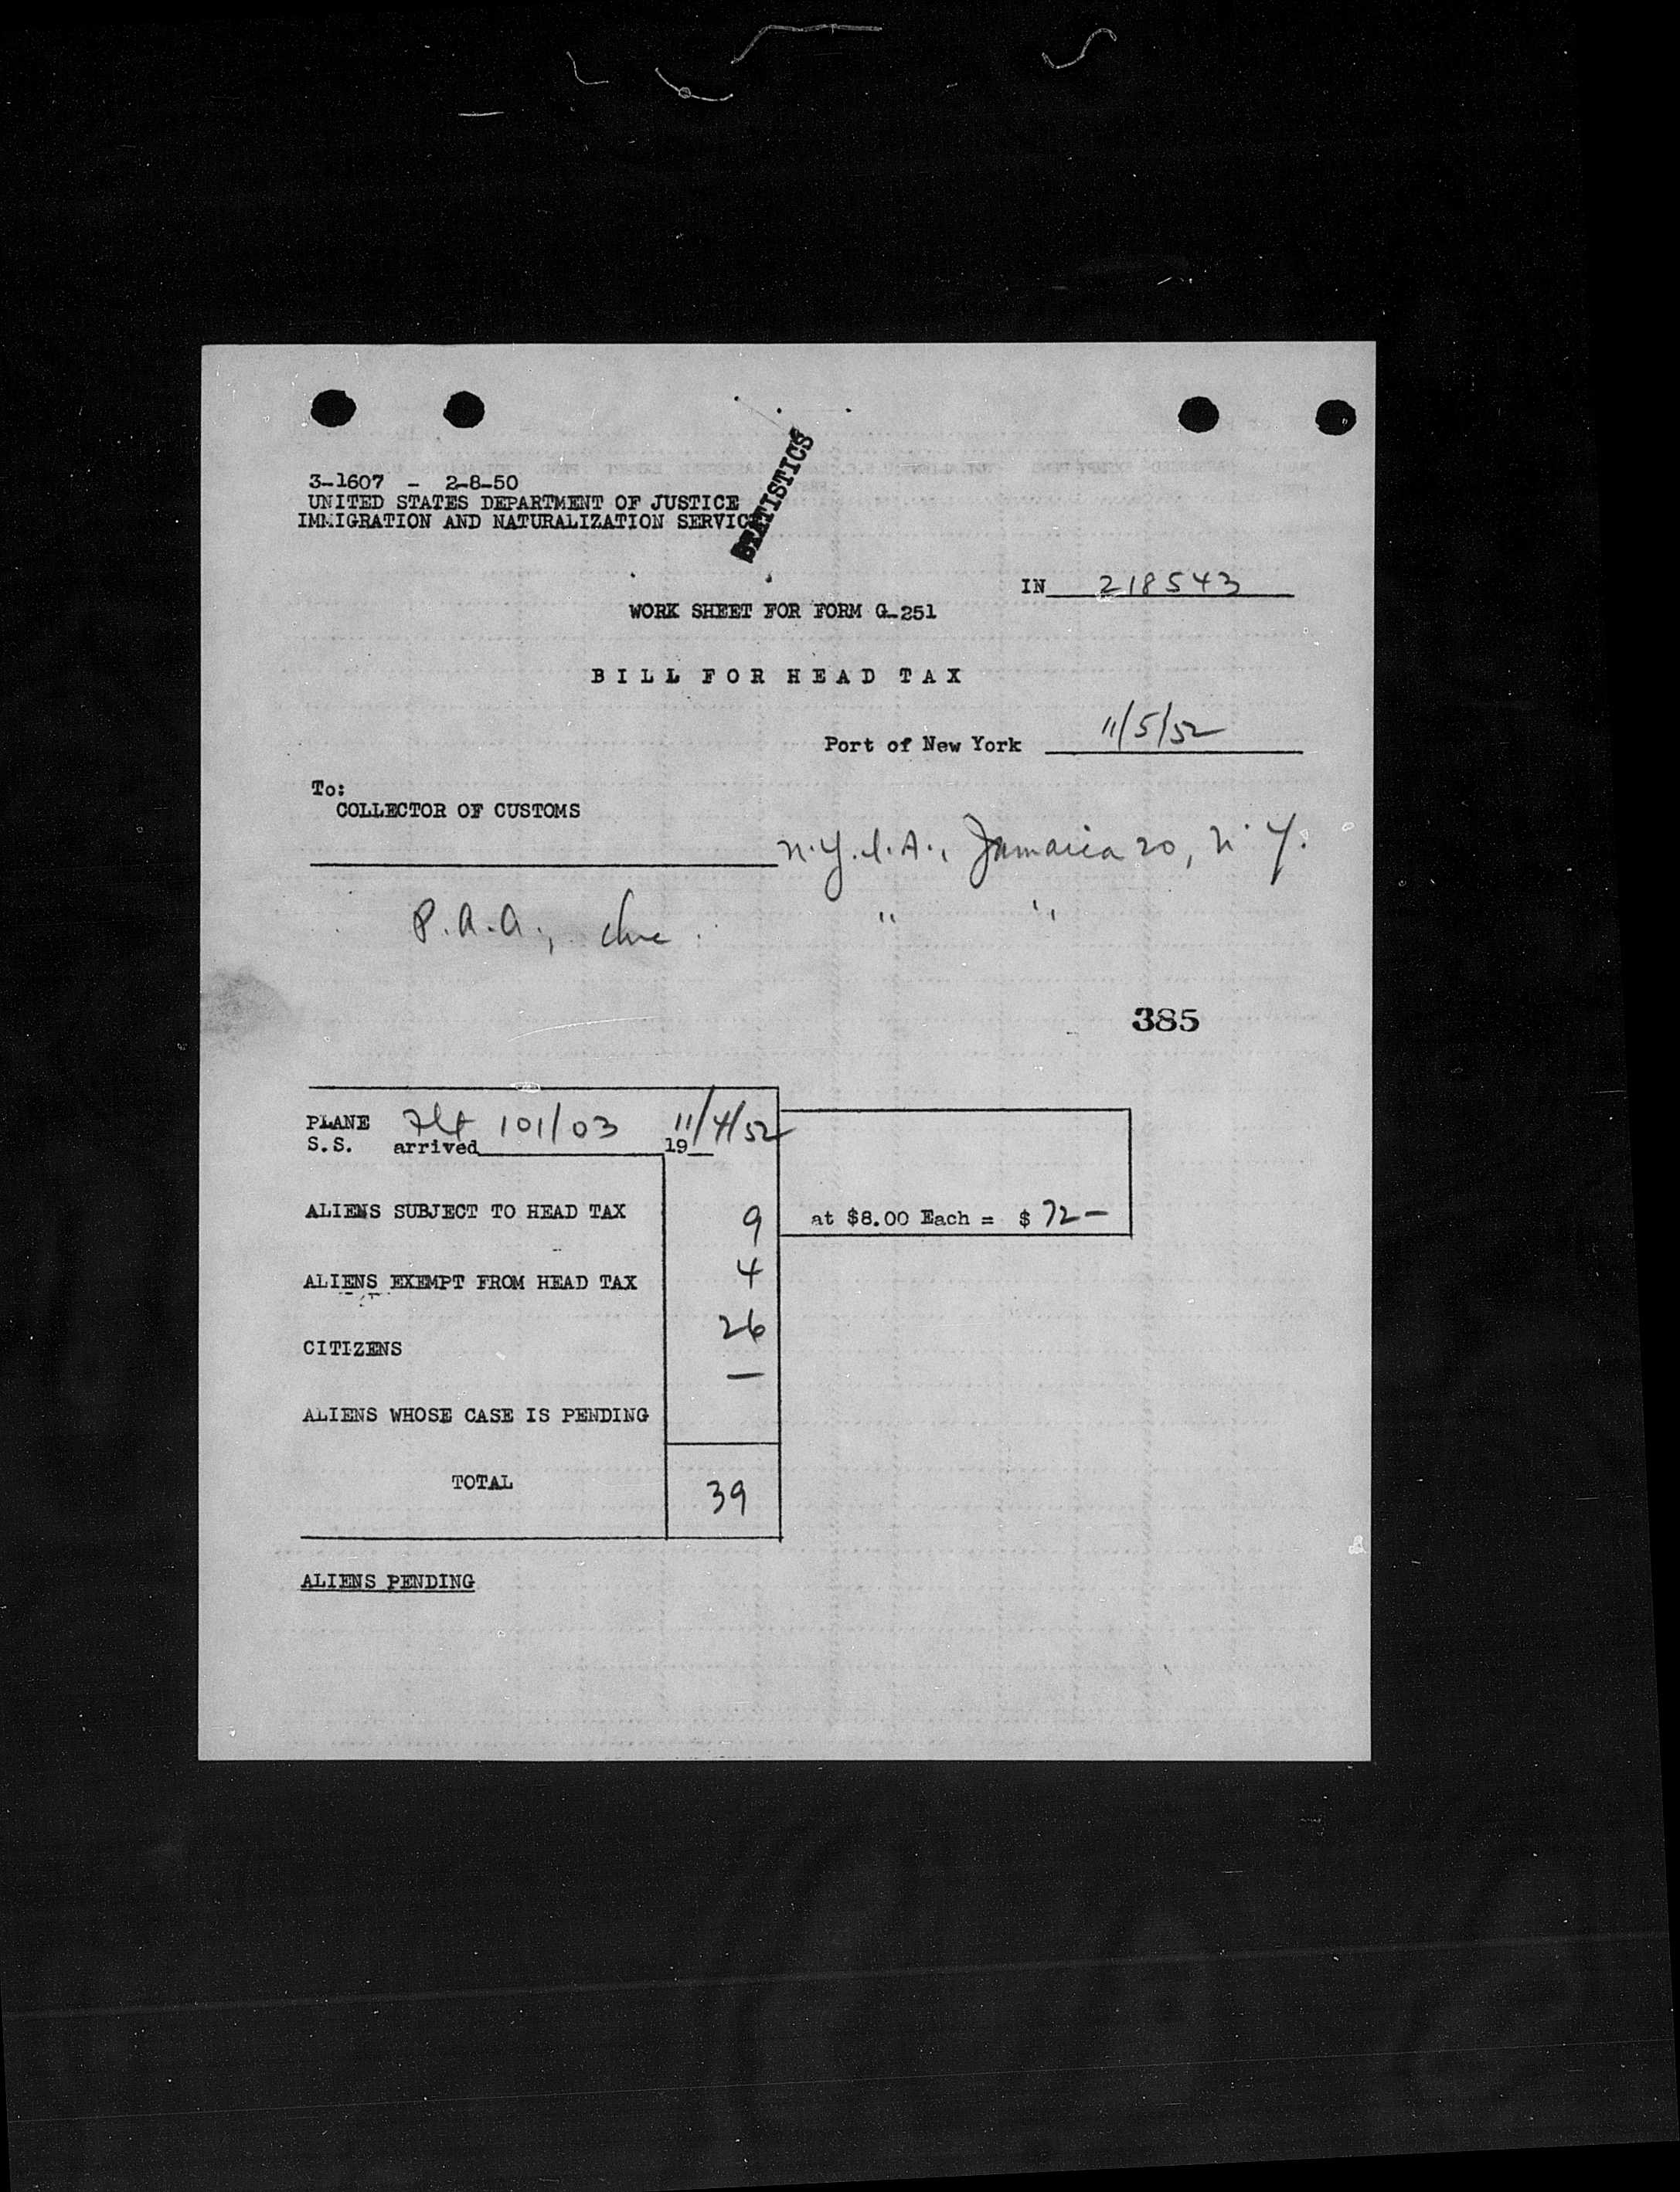 3-1607 - 2-8-50
UNITED STATES DEPARTMENT OF JUSTICE
IMMIGRATION AND NATURALIZATION SERVICE
STATISTICS
IN 218543
WORK SHEET FOR FORM G-251
BILL FOR HEAD TAX
Port of New York 11/5/52
To:
COLLECTOR OF CUSTOMS
N.Y.I.A., Jamaica 20, N.Y.
P.A.A., Inc. " "
385
PLANE Flt 101/03 11/4/52
S.S. arrived 19
ALIENS SUBJECT TO HEAD TAX 9 at $8.00 Each = $ 72-
ALIENS EXEMPT FROM HEAD TAX 4
CITIZENS 26
ALIENS WHOSE CASE IS PENDING —
TOTAL 39
ALIENS PENDING